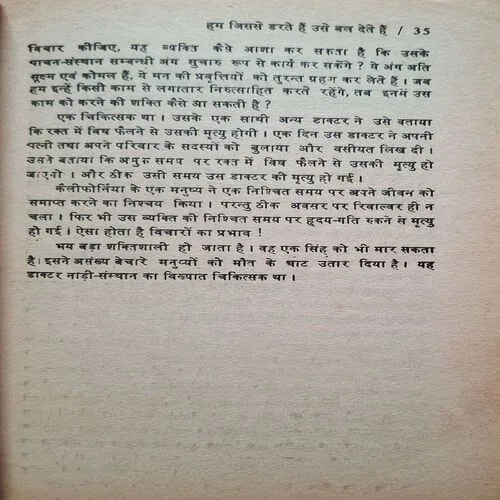 हम जिससे डरते हैं उसे बल देते हैं / 35
विचार कीजिए, यह व्यक्ति कैसे आशा कर सकता है कि उसके
पाचन-संस्थान सम्बन्धी अंग सुचारु रूप से कार्य कर सकेंगे ? ये अंग अति
सूक्ष्म एवं कोमल हैं, ये मन की प्रवृत्तियों को तुरन्त ग्रहण कर लेते हैं । जब
हम इन्हें किसी काम से लगातार निरुत्साहित करते रहेंगे, तब इनमें उस
काम को करने की शक्ति कैसे आ सकती है ?
एक चिकित्सक था । उसके एक साथी अन्य डाक्टर ने उसे बताया
कि रक्त में विष फैलने से उसकी मृत्यु होगी । एक दिन उस डाक्टर ने अपनी
पत्नी तथा अपने परिवार के सदस्यों को बुलाया और वसीयत लिख दी ।
उसने बताया कि अमुक समय पर रक्त में विष फैलने से उसकी मृत्यु हो
जाएगी । और ठीक उसी समय उस डाक्टर की मृत्यु हो गई ।
कैलीफोर्निया के एक मनुष्य ने एक निश्चित समय पर अपने जीवन को
समाप्त करने का निश्चय किया । परन्तु ठीक अवसर पर रिवाल्वर ही न
चला । फिर भी उस व्यक्ति की निश्चित समय पर हृदय-गति रुकने से मृत्यु
हो गई । ऐसा होता है विचारों का प्रभाव !
भय बड़ा शक्तिशाली हो जाता है । वह एक सिंह को भी मार सकता
है। इसने असंख्य बेचारे मनुष्यों को मौत के घाट उतार दिया है । यह
डाक्टर नाड़ी-संस्थान का विख्यात चिकित्सक था ।